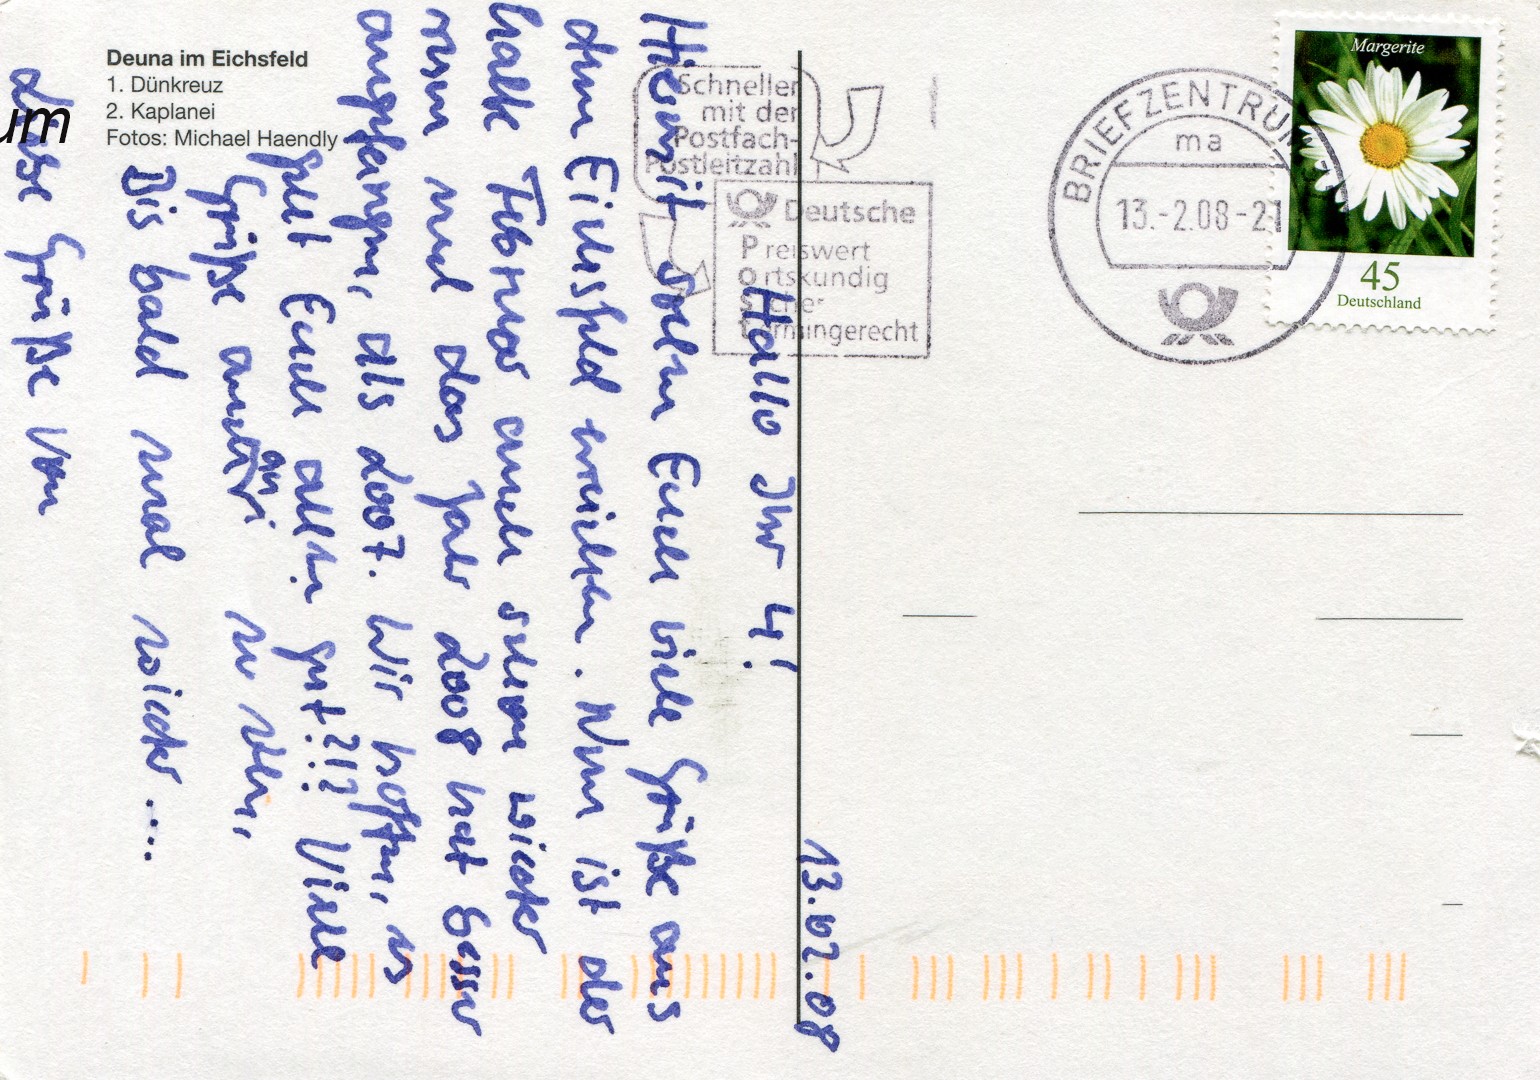 Deuna im Eichsfeld
1. Dünkreuz
2. Kaplanei
Fotos: Michael Haendly
um
Schneller
mit der
Postfach-
Postleitzahl
Deutsche
Preiswert
ortskundig
sicher
termingerecht
BRIEFZENTRUM
ma
13.-2.08-21
Margerite
45
Deutschland
13.02.08
Hallo Ihr 4!
Hiermit sollen Euch viele Grüße aus
dem Eichsfeld erreichen. Nun ist der
halbe Februar auch schon wieder
rum und das Jahr 2008 hat besser
angefangen, als 2007. Wir hoffen, es
geht Euch allen gut?!? Viele
Grüße auch an
zu
Bis bald mal wieder ...
Grüße von